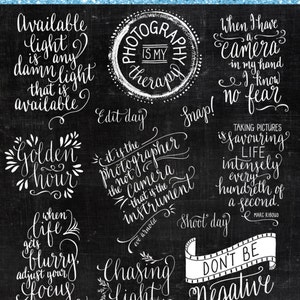 Available
light is
any
damn
light that
is available
PHOTOGRAPHY
IS MY
therapy
When I have
a
camera
in my hand
I know
no fear
Edit day
Snap!
Golden
hour
it is the
photographer
not the
camera
that is the
instrument
eve arnold
TAKING PICTURES
is
favouring
LIFE
intensely
every
hundreth of
a second.
MARC RIBOUD
'Shoot' day
when
life
gets
blurry
adjust your
focus
Chasing
Light
DON'T BE
Negative